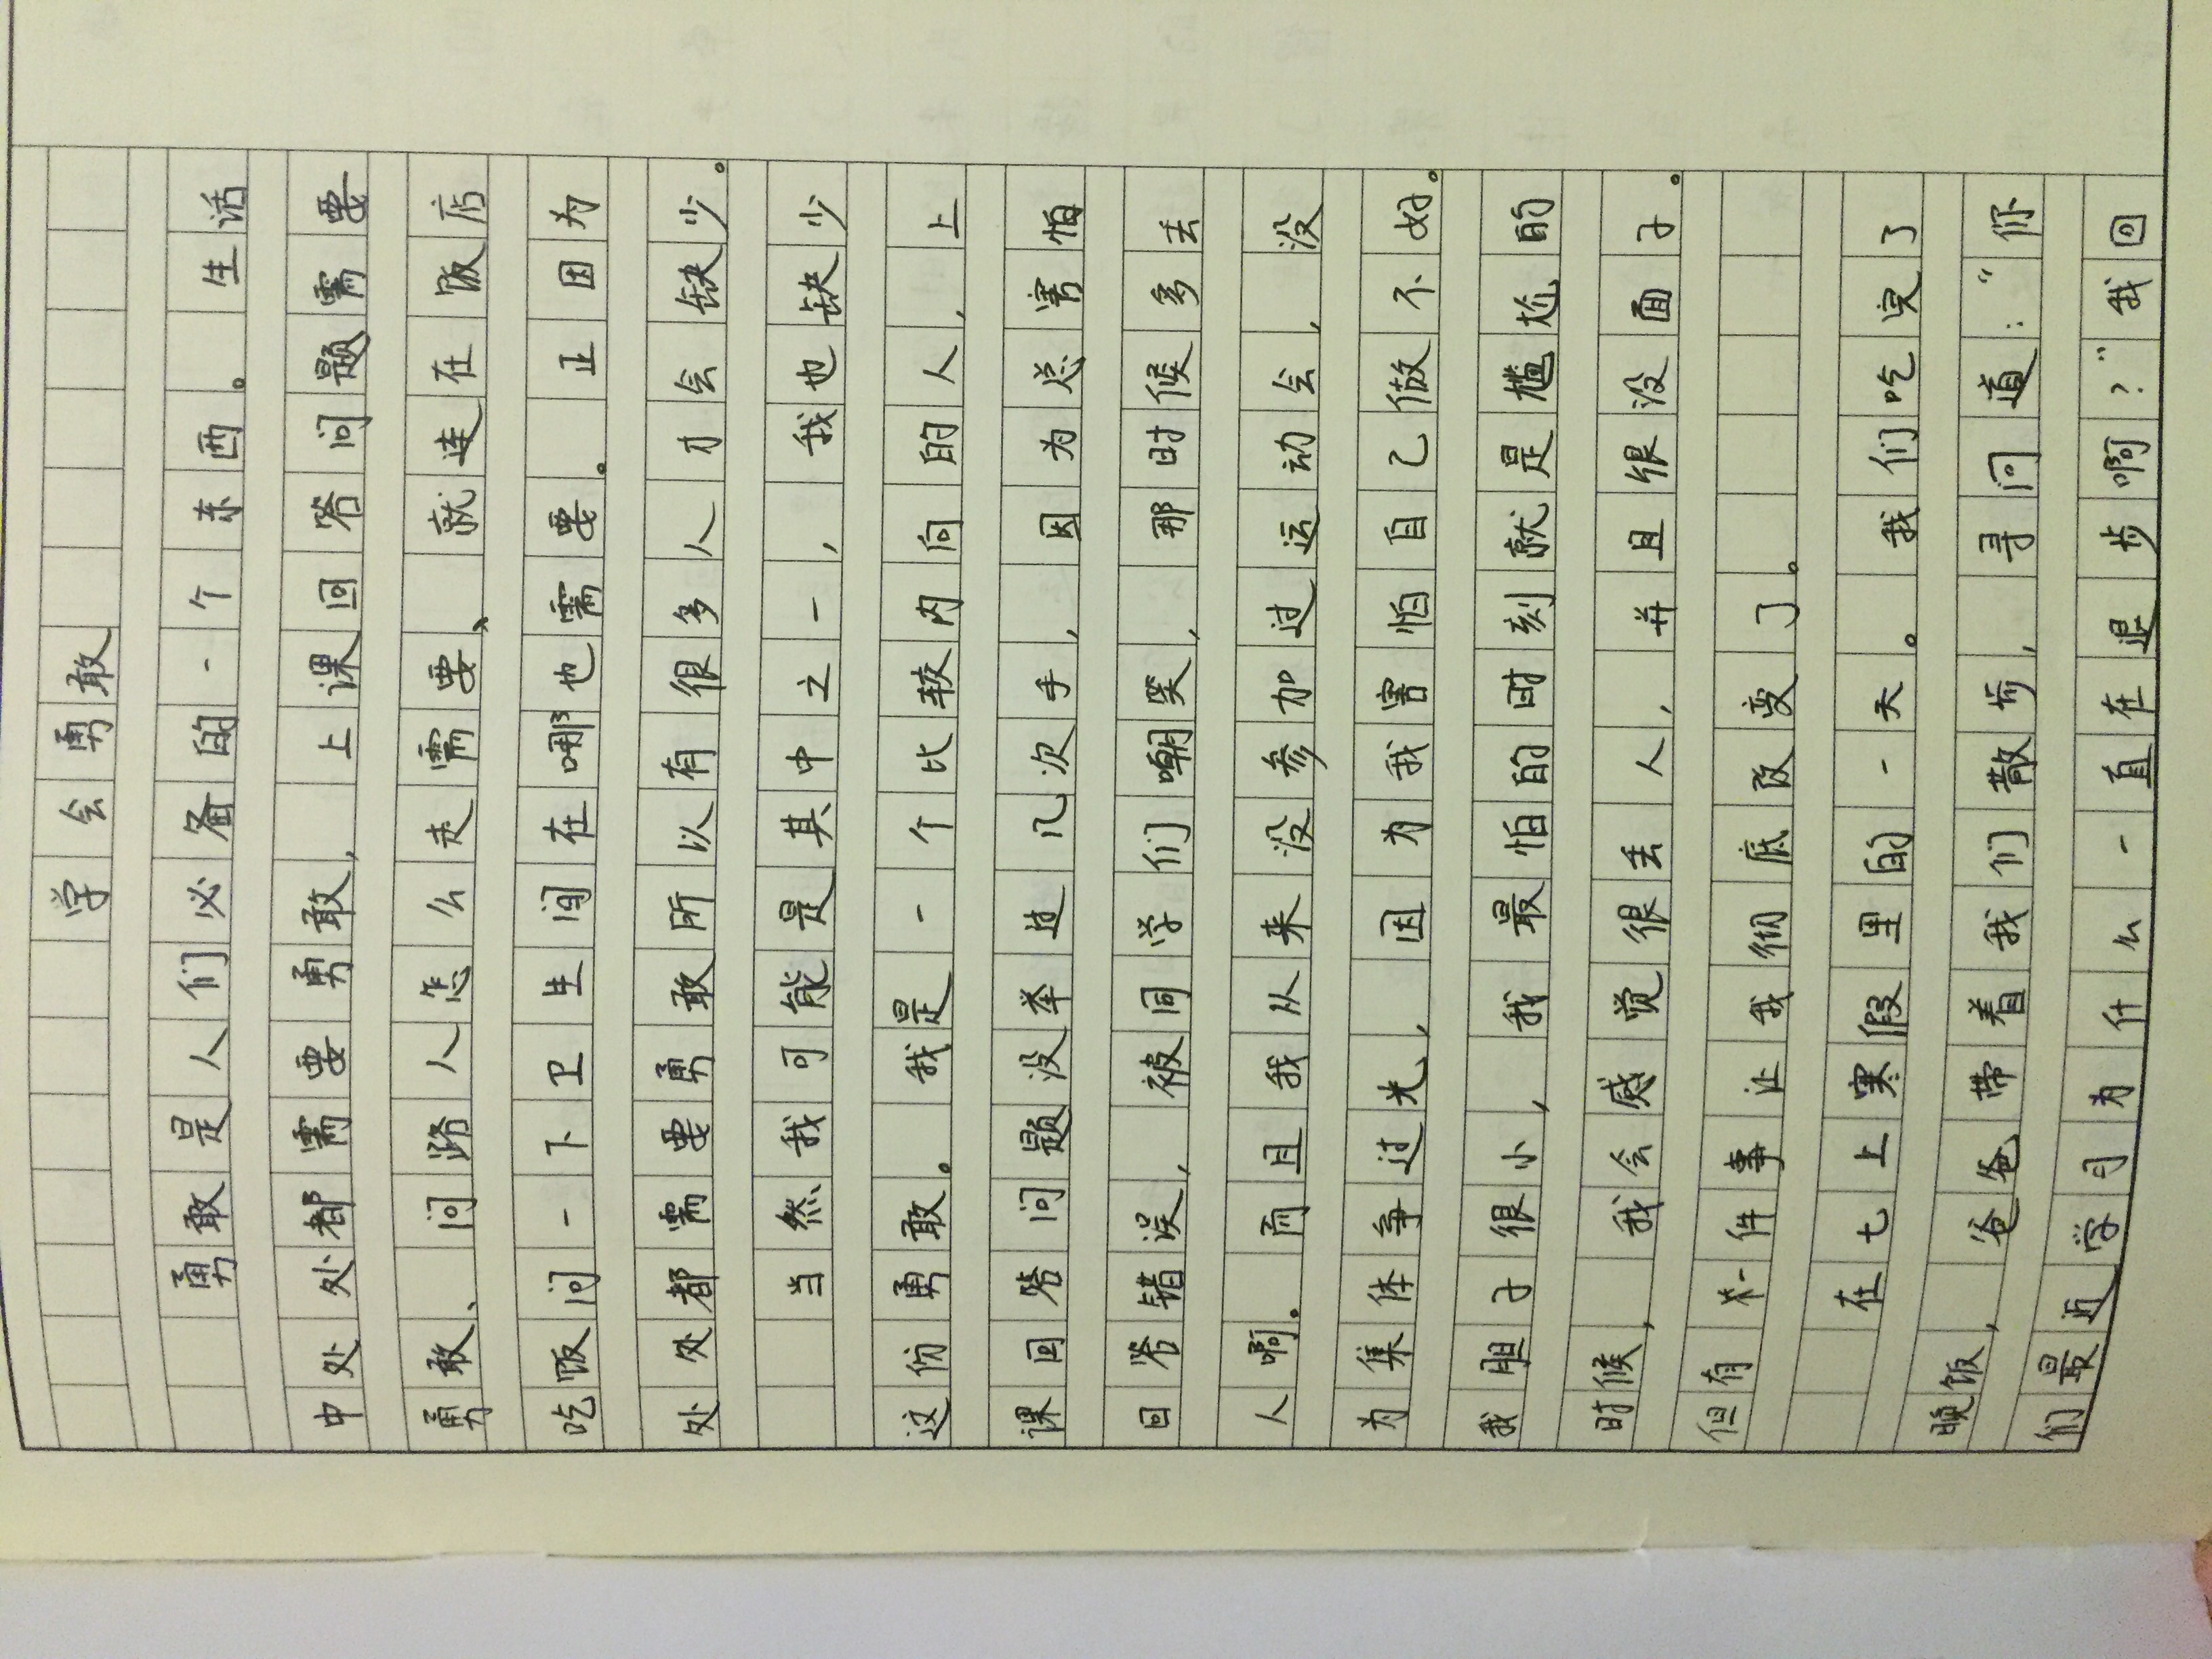 学会勇敢
勇敢是人们必备的一个东西。生活
中处处都需要勇敢,上课回答问题需要
勇敢、问路人怎么走需要、就连在饭店
吃饭问一下卫生间在哪也需要。正因为
处处都需要勇敢所以有很多人才会缺少。
当然我可能是其中之一,我也缺少
这份勇敢。我是一个比较内向的人,上
课回答问题没举过几次手,因为总害怕
回答错误,被同学们嘲笑,那时候多丢
人啊。而且我从来没参加过运动会,没
为集体争过光,因为我害怕自己做不好。
我胆子很小,我最怕的时刻就是尴尬的
时候,我会感觉很丢人,并且很没面子。
但有一件事让我彻底改变了。
在七上寒假里的一天。我们吃完了
晚饭,爸爸带着我们散步,寻问道:“你
们最近学习为什么一直在退步啊?”我回